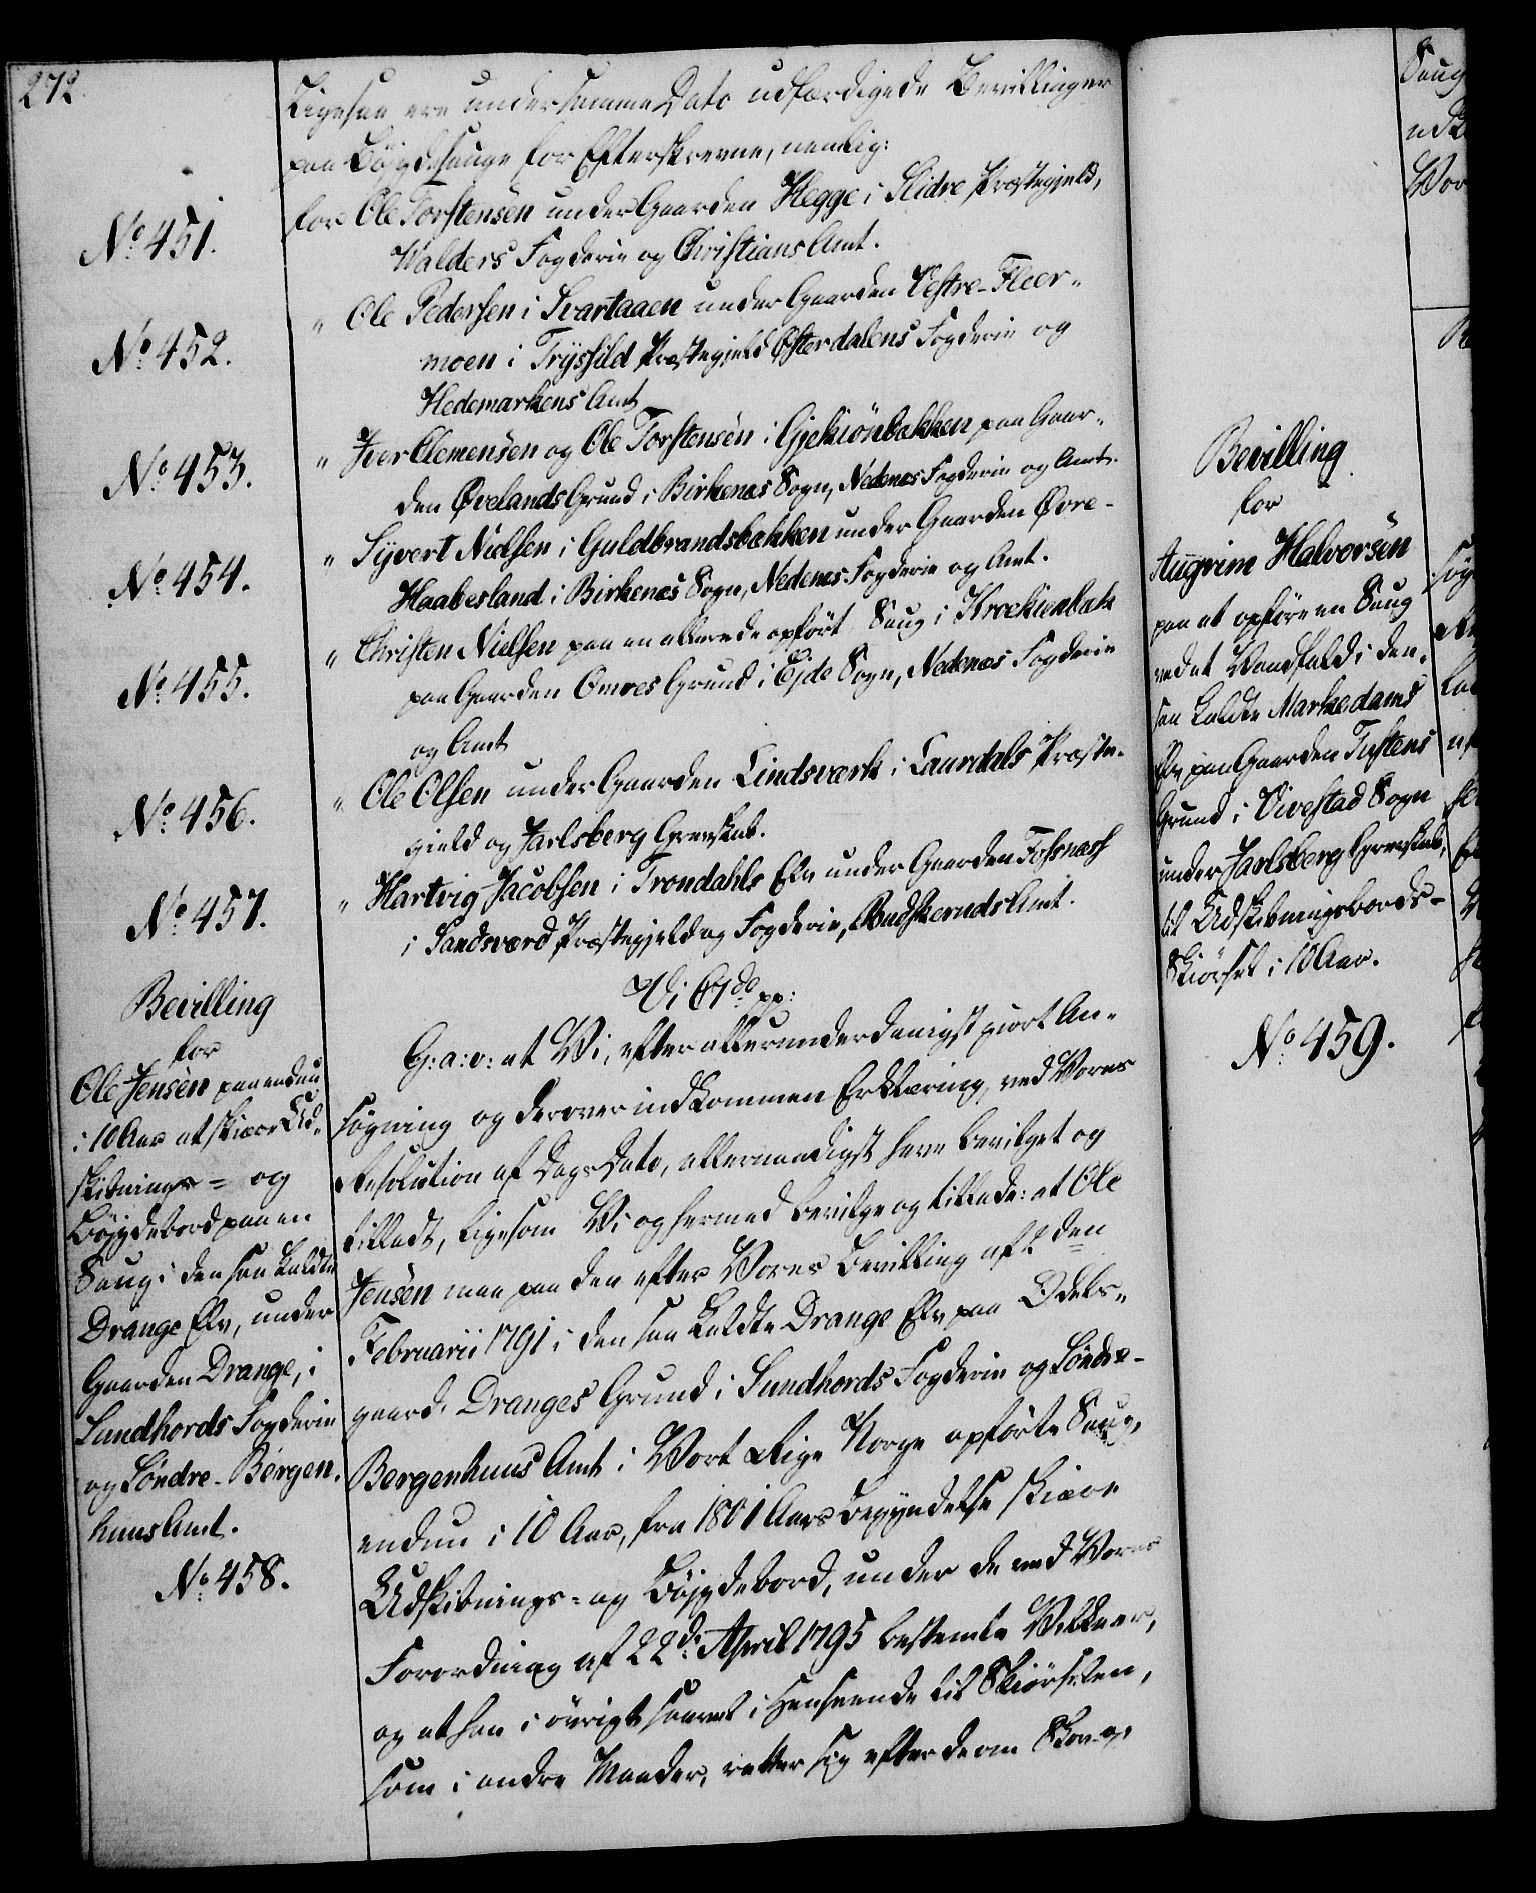 272
Ligesaa ere under samme Dato udfærdigede Bevillinger
paa Bøjgdesauge for Efterskrevne, nemlig:
No 451.
for Ole Torstensen under Gaarden Hegge i Slidre Præstegjeld,
Walders Fogderie og Christians Amt.
No 452.
" Ole Pedersen i Svartaaen under Gaarden Vestre-Fleer-
moen i Trysfild Præstegjeld Østerdalens Fogderie og
Hedemarkens Amt
No 453.
" Jver Clemensen og Ole Torstensen i Gjekiønbakken paa Gaar-
den Øvelands Grund i Birkenæs Sogn, Nedenæs Fogderie og Amt.
No 454.
" Syvert Nielsen i Guldbrandsbakken under Gaarden Øvre-
Haabesland i Birkenæs Sogn, Nedenæs Fogderie og Amt.
No 455.
" Christen Nielsen paa en allerede opført Saug i Krockienbæk
paa Gaarden Omres Grund i Ejde Sogn, Nedenæs Fogderie
og Amt
No 456.
" Ole Olsen under Gaarden Lindsværk i Laurdals Præste-
gield og Jarlsberg Grevskab.
No 457.
" Hartvig Jacobsen i Trondahls Elv under Gaarden Fossnæss
i Sandsværd Præstegjeld og Fogderie, Budskeruds Amt.
Bevilling
for
Ole Jensen paa endnu
i 10 Aar at skiære Ud-
skibnings- og
Bøjgdebord paa en
Saug i den saa kaldte
Drange Elv, under
Gaarden Drange, i
Sundhords Fogderie
og Søndre-Bergen-
huus Amt.
No 458.
Vi C 7de pp:
G: a: v: at Vi, efter allerunderdanigst giort An-
søgning og derover indkommen Erklæring, ved Vores
Resolution af Dags Dato, allernaadigst have bevilget og
tilladt, ligesom Vi og hermed bevilge og tillade: at Ole
Jensen maa paa den efter Vores Bevilling af 2den
Februarii 1791 i den saa kaldte Drange Elv paa Odels-
gaard. Dranges Grund i Sundhords Fogderie og Søndre-
Bergenhuus Amt i Vort Rige Norge opførte Saug,
endnu i 10 Aar, fra 1801 Aars Begyndelse skiære
Udskibnings- og Bøjgdebord, under de ved Vores
Forordning af 22de April 1795 bestemte Vilkaar,
og at han i øvrigt saavel i Henseende til Skiørselen,
som i andre Maader, retter sig efter de om Skov-og
Bevilling
for
Augrim Halvorsen
paa at opføre en Saug
ved et Vandfald i den
saa kaldte Markedams
Elv paa Gaarden Tuftens
Grund i Vivestad Sogn
under Jarlsberg Grevskab,
til Udskibningsbords-
Skiørsel i 10 Aar.
No 459.